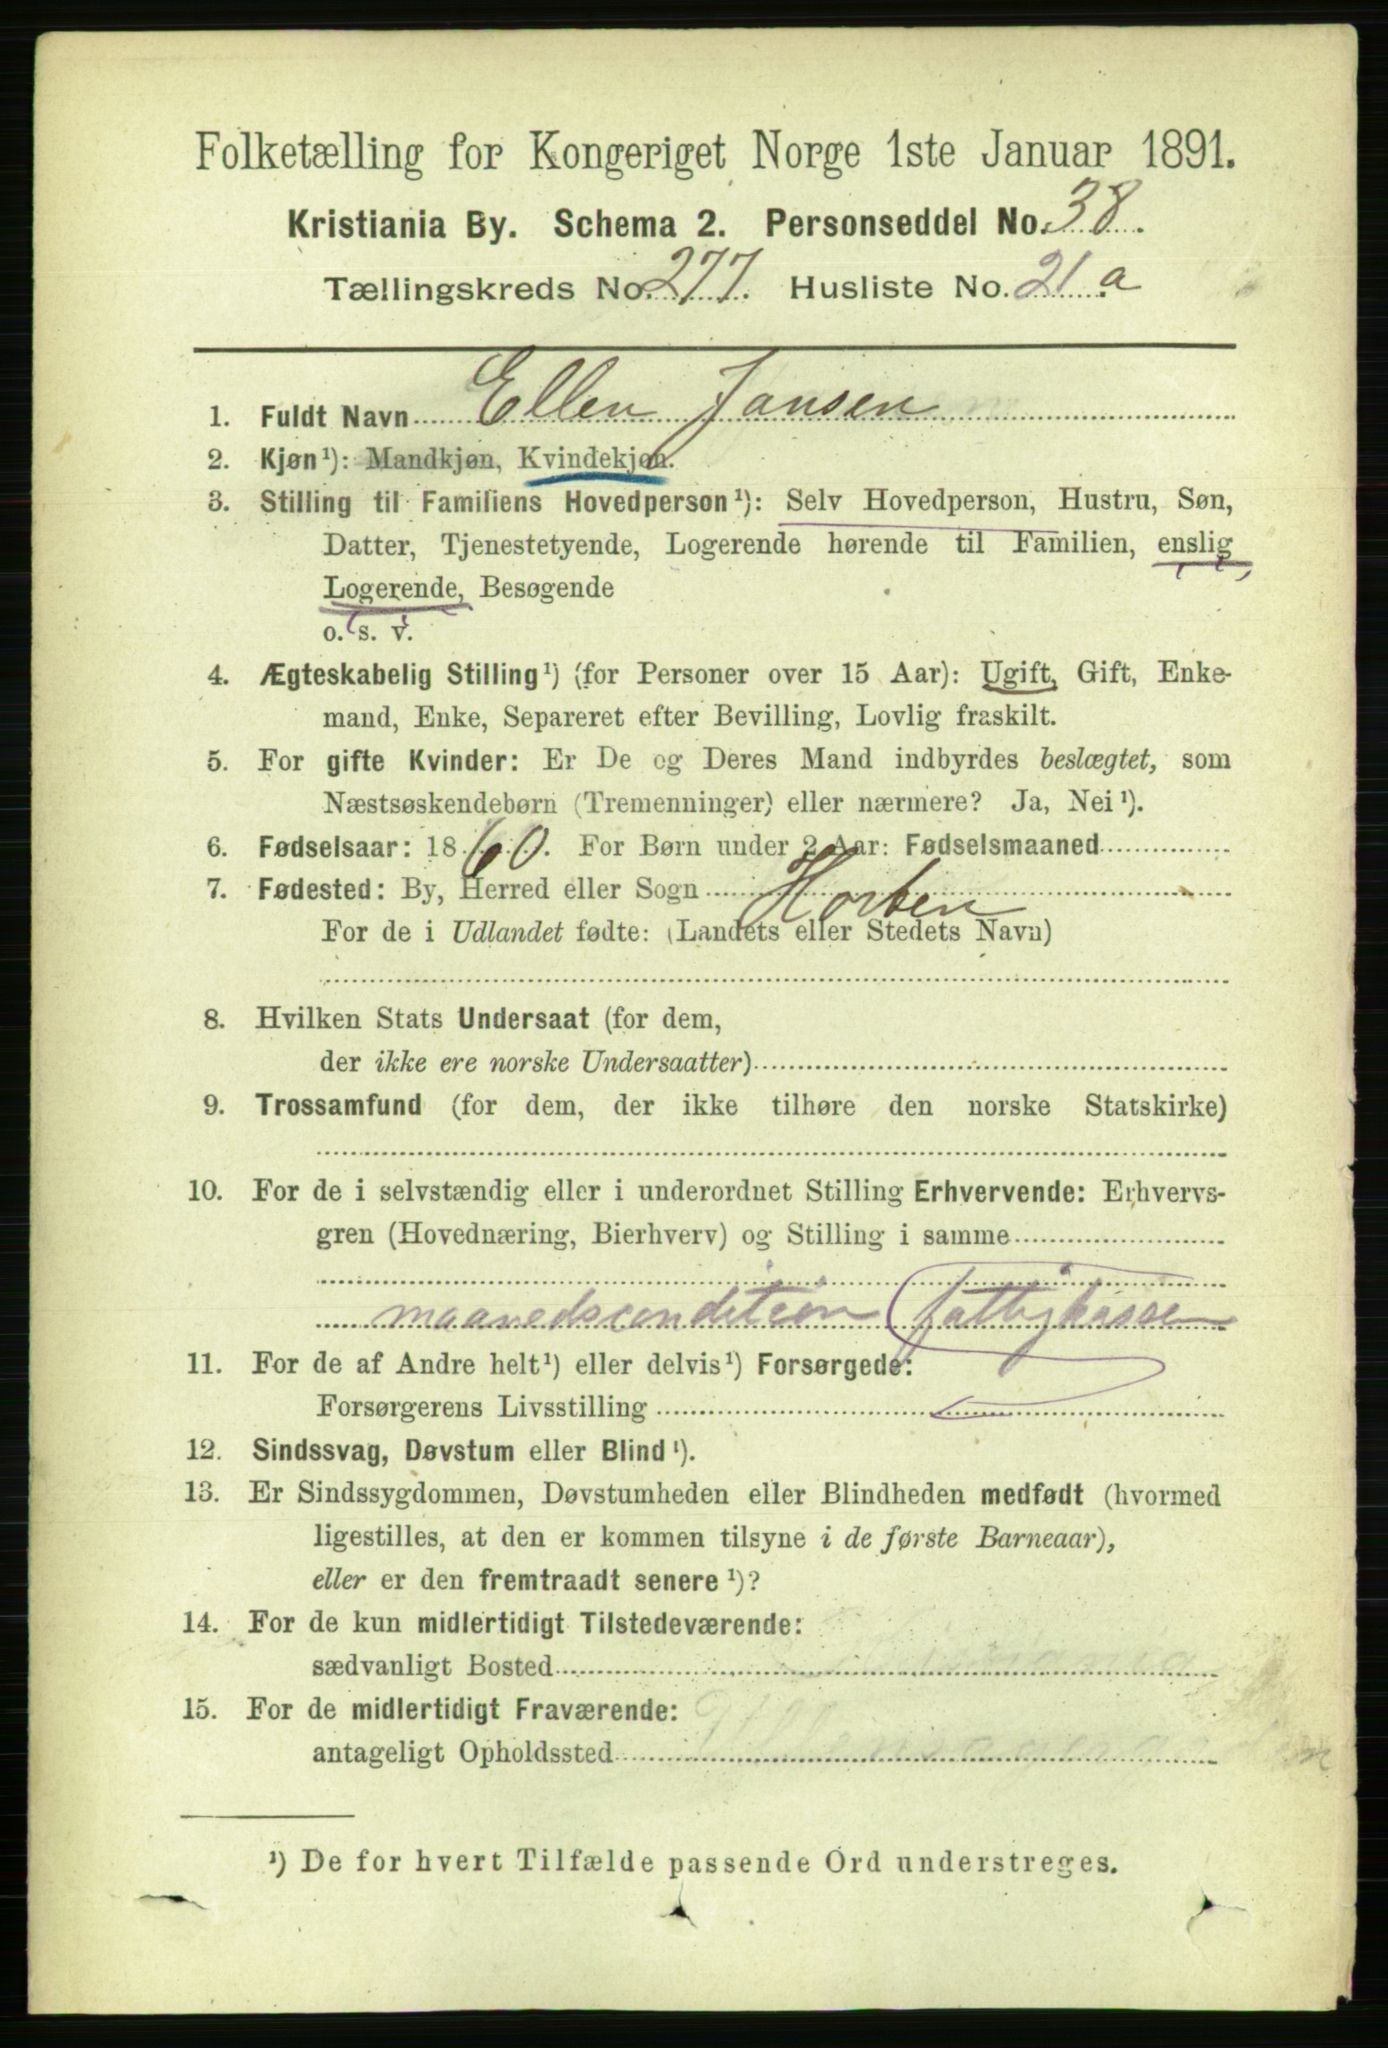 Folketælling for Kongeriget Norge 1ste Januar 1891.
Kristiania By. Schema 2. Personseddel No. 38.
Tællingskreds No. 277. Husliste No. 21 a
1. Fuldt Navn Ellen Jansen
2. Kjøn¹): Mandkjøn, Kvindekjøn.
3. Stilling til Familiens Hovedperson¹): Selv Hovedperson, Hustru, Søn,
Datter, Tjenestetyende, Logerende hørende til Familien, enslig
Logerende, Besøgende
o. s. v.
4. Ægteskabelig Stilling¹) (for Personer over 15 Aar): Ugift, Gift, Enke-
mand, Enke, Separeret efter Bevilling, Lovlig fraskilt.
5. For gifte Kvinder: Er De og Deres Mand indbyrdes beslægtet, som
Næstsøskendebørn (Tremenninger) eller nærmere? Ja, Nei¹).
6. Fødselsaar: 1860. For Børn under 2 Aar: Fødselsmaaned
7. Fødested: By, Herred eller Sogn Horten
For de i Udlandet fødte: (Landets eller Stedets Navn)
8. Hvilken Stats Undersaat (for dem,
der ikke ere norske Undersaatter)
9. Trossamfund (for dem, der ikke tilhøre den norske Statskirke)
10. For de i selvstændig eller i underordnet Stilling Erhvervende: Erhvervs-
gren (Hovednæring, Bierhverv) og Stilling i samme
maanedscondition fattigkassen
11. For de af Andre helt¹) eller delvis¹) Forsørgede:
Forsørgerens Livsstilling
12. Sindssvag, Døvstum eller Blind¹).
13. Er Sindssygdommen, Døvstumheden eller Blindheden medfødt (hvormed
ligestilles, at den er kommen tilsyne i de første Barneaar),
eller er den fremtraadt senere¹)?
14. For de kun midlertidigt Tilstedeværende:
sædvanligt Bosted
15. For de midlertidigt Fraværende:
antageligt Opholdssted
¹) De for hvert Tilfælde passende Ord understreges.